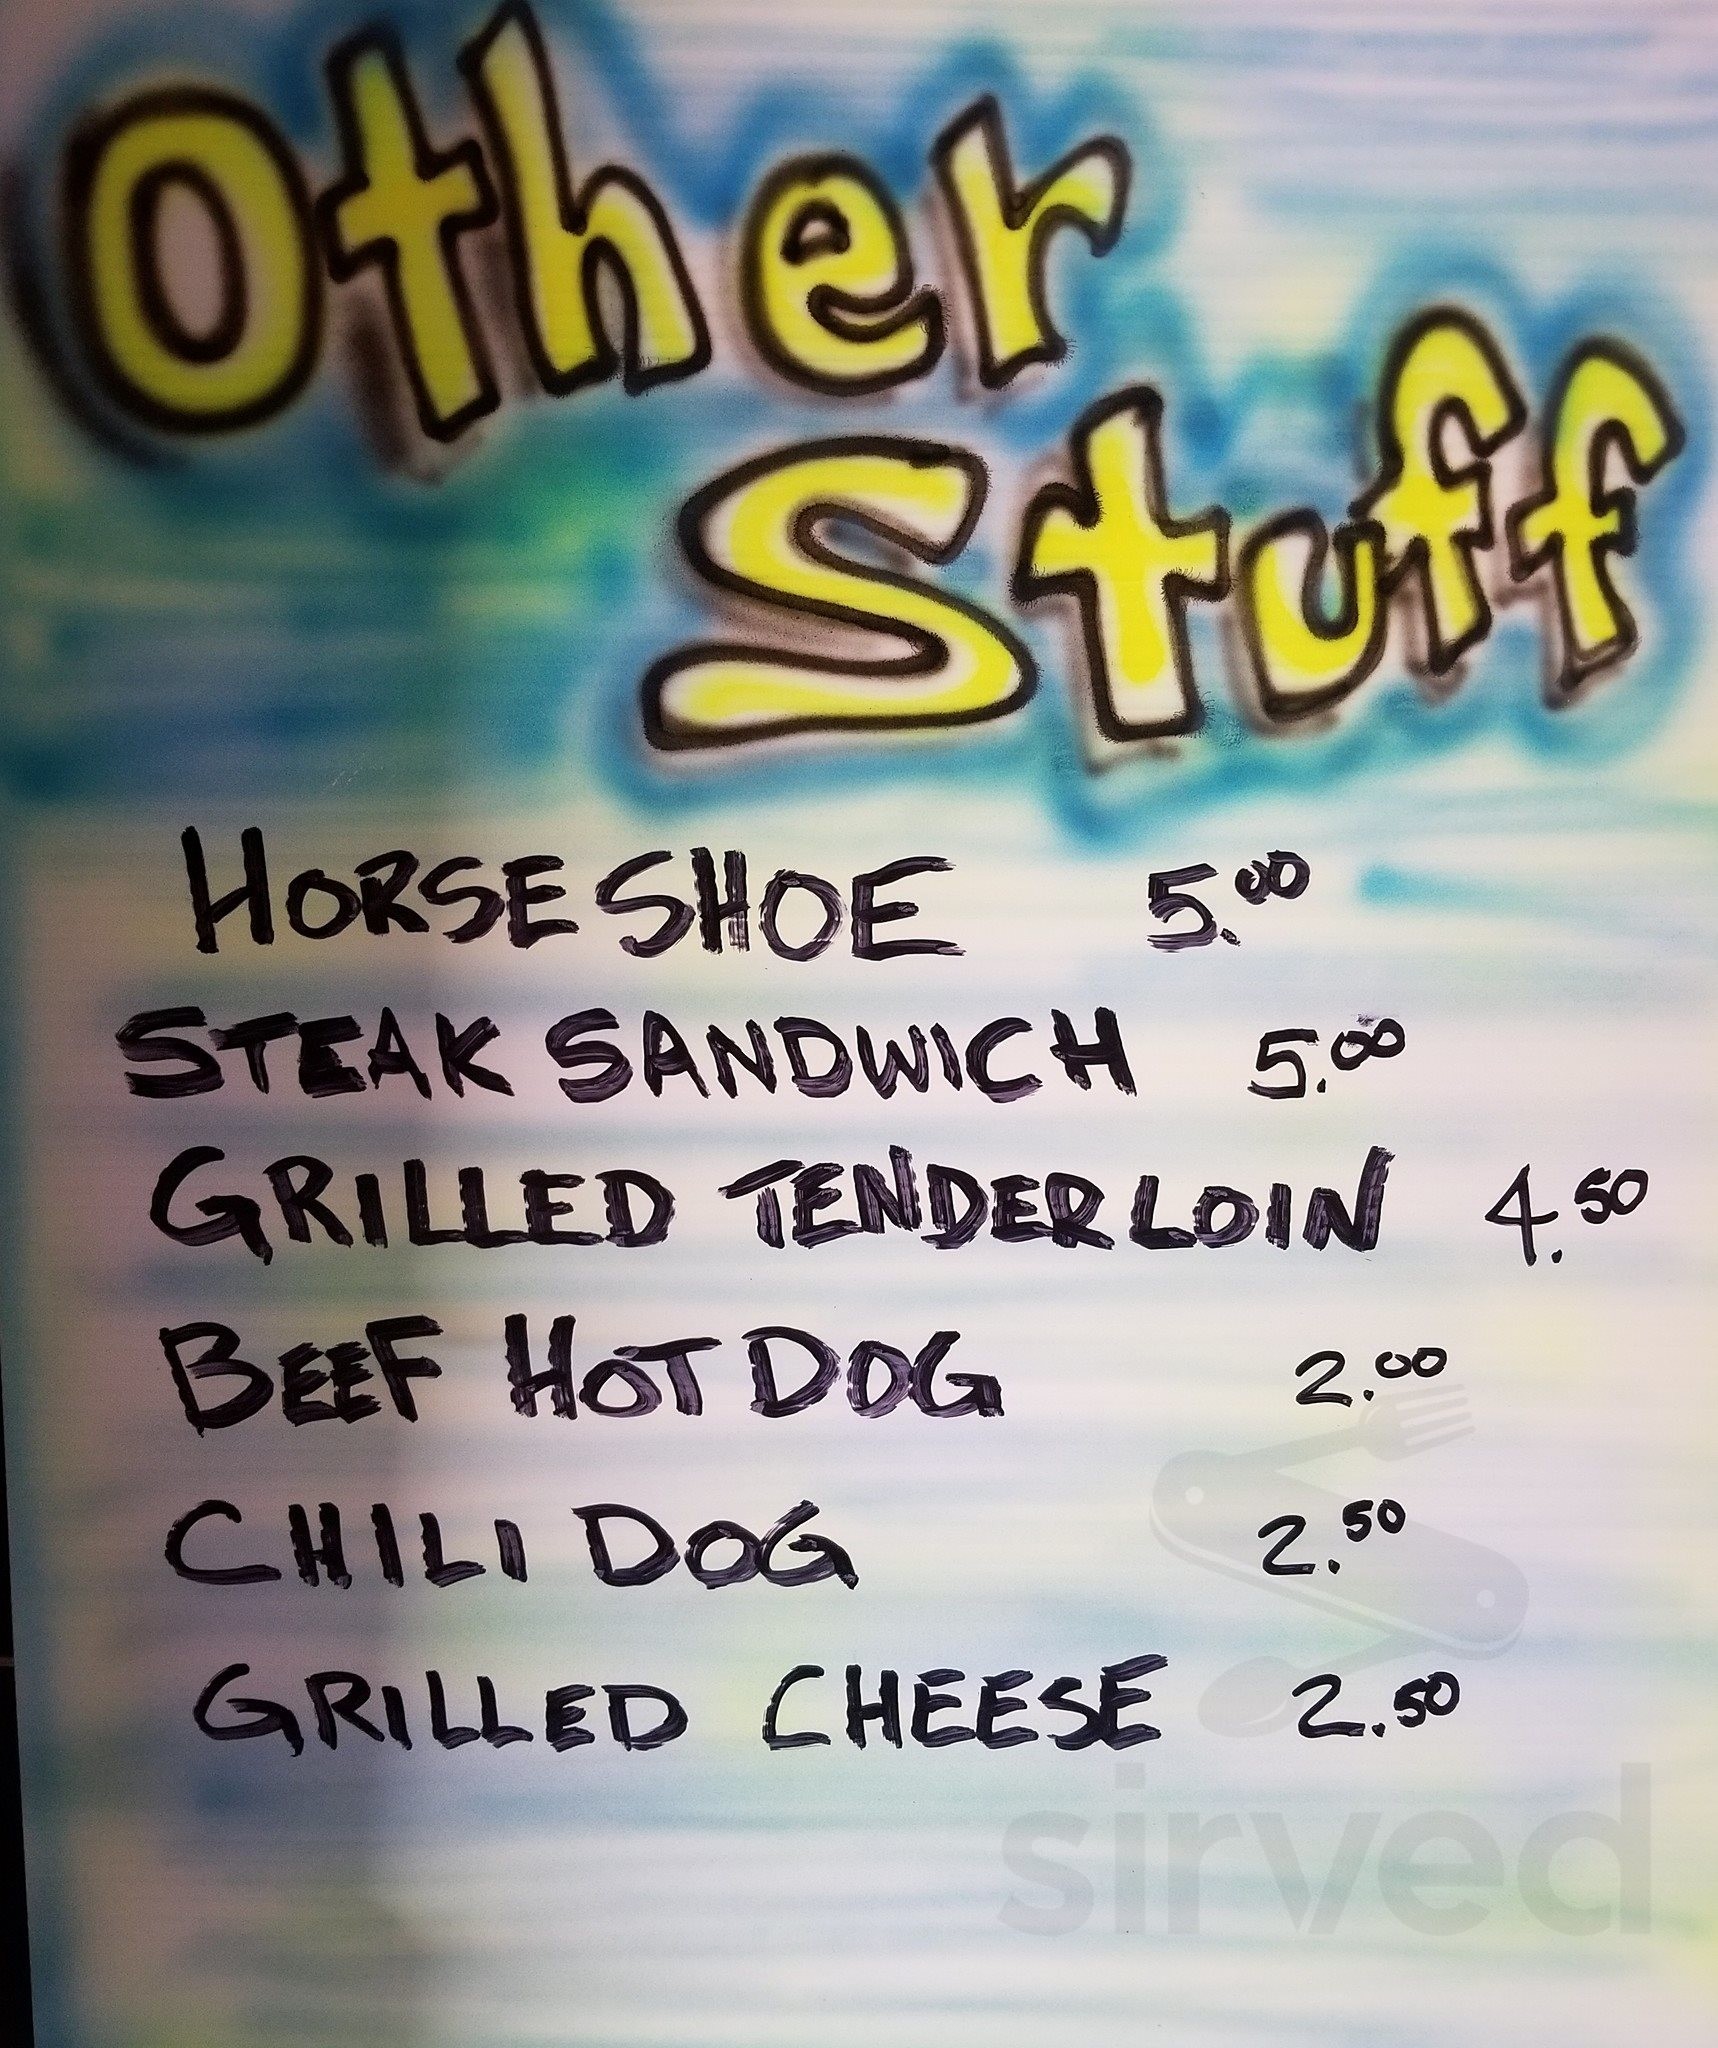 Other
Stuff
HORSESHOE 5.00
STEAK SANDWICH 5.00
GRILLED TENDERLOIN 4.50
BEEF HOT DOG 2.00
CHILI DOG 2.50
GRILLED CHEESE 2.50
sirved